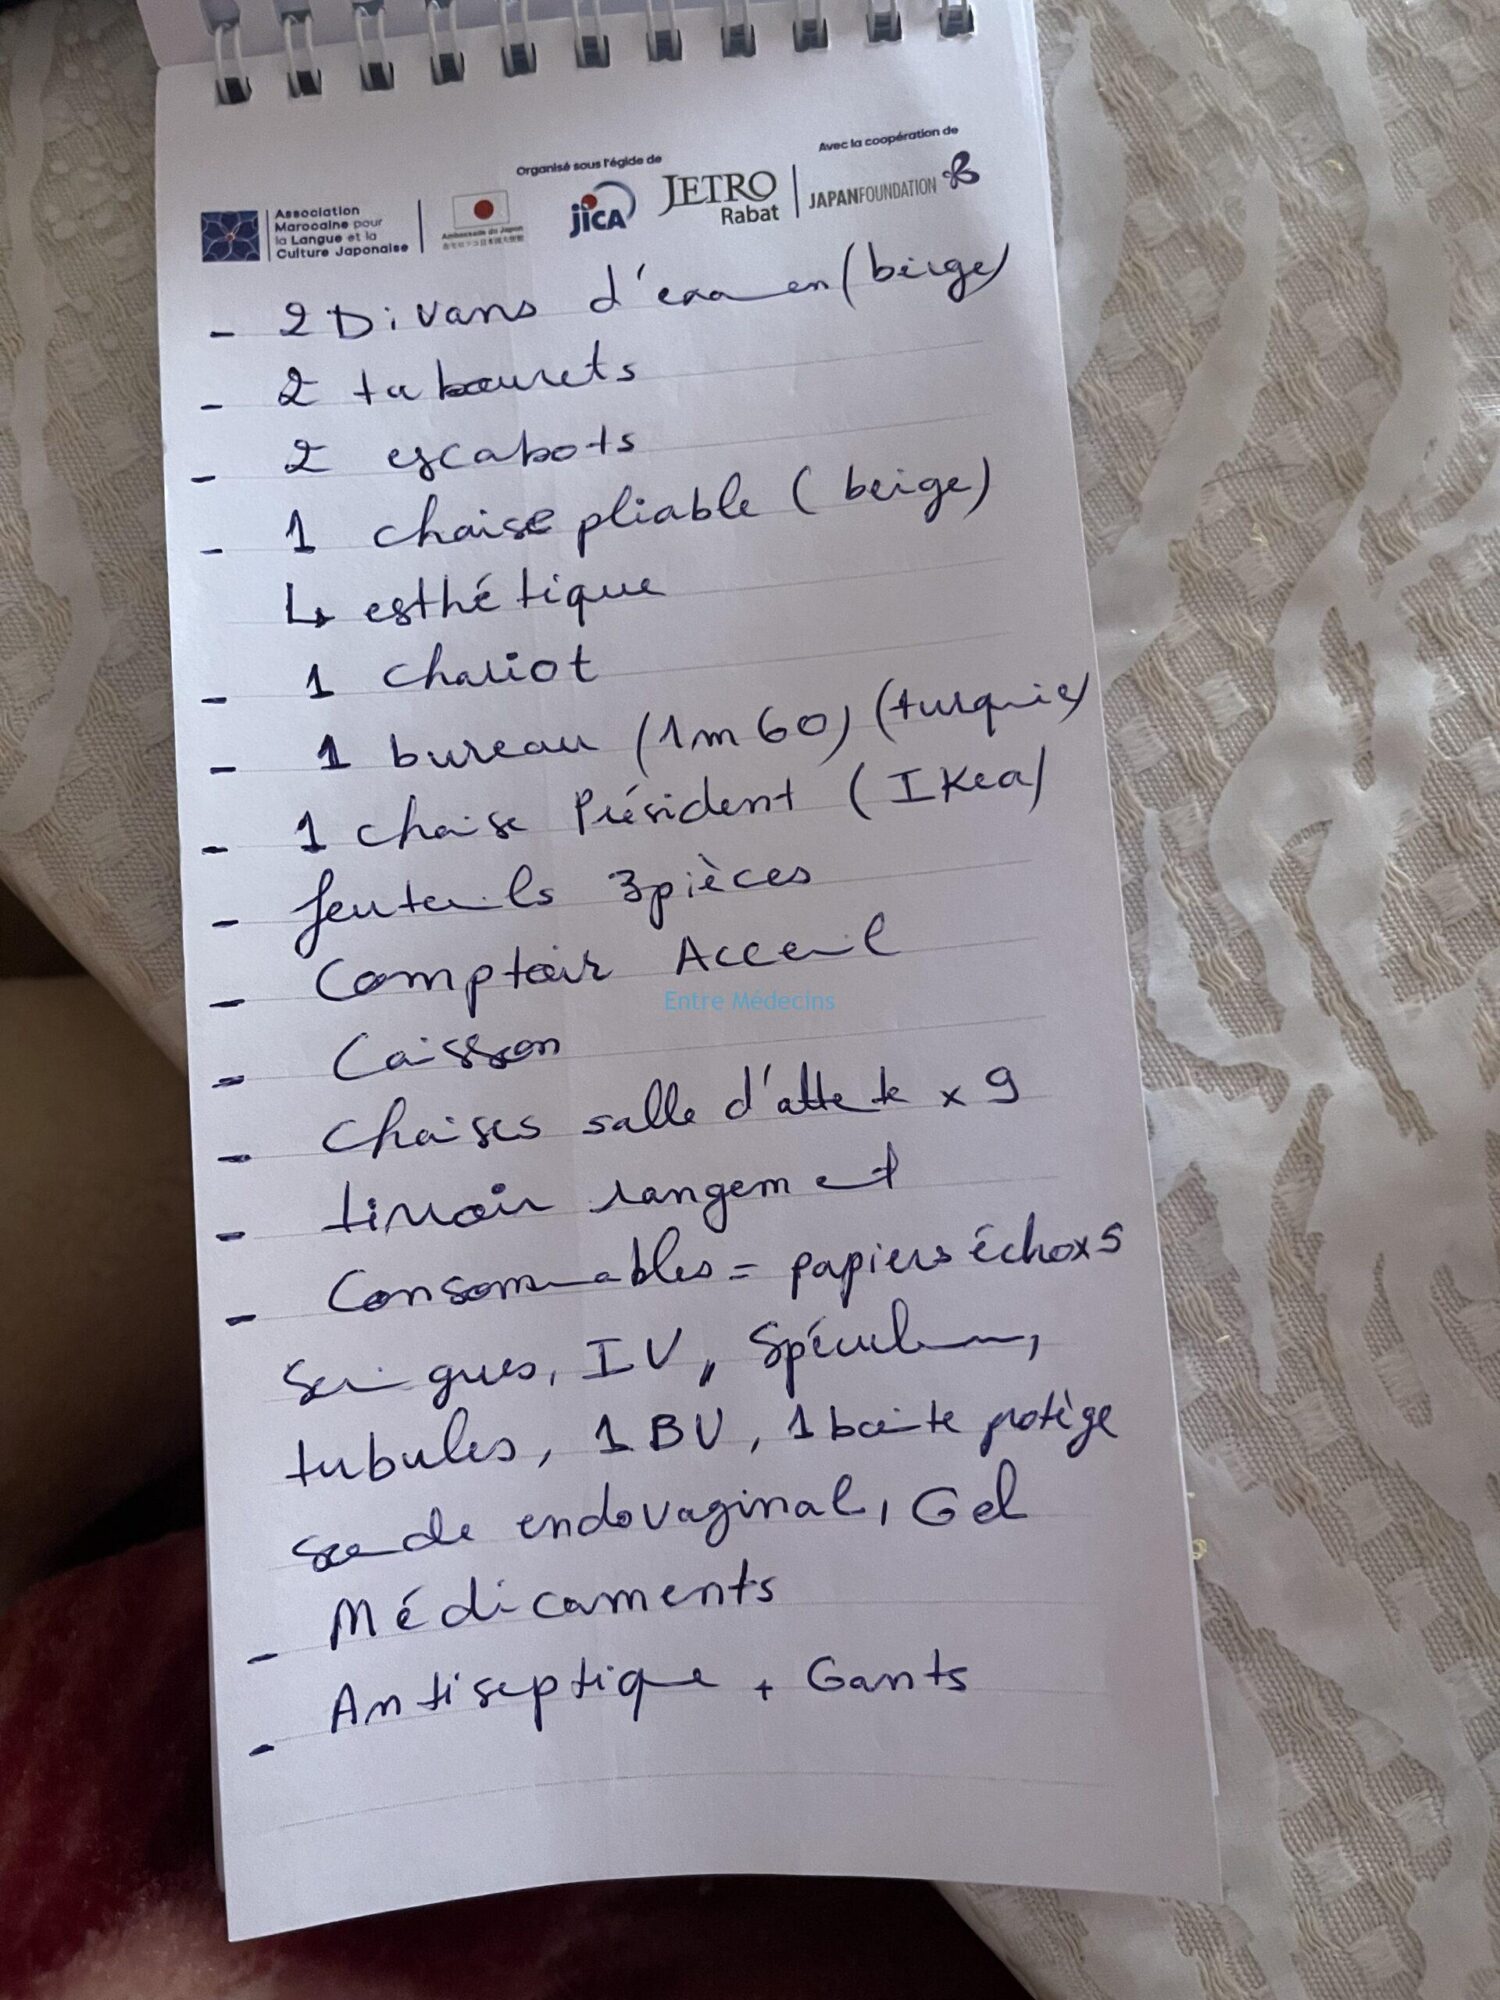 Organisé sous l'égide de
Avec la coopération de
Association
Marocaine pour
la Langue et la
Culture Japonaise
Ambassade du Japon
在モロッコ日本国大使館
JICA
JETRO
Rabat
JAPANFOUNDATION
- 2 Divans d'examen (beige)
- 2 tabourets
- 2 escabots
- 1 chaise pliable (beige)
↳ esthétique
- 1 chariot
- 1 bureau (1m60) (turquie)
- 1 chaise Président (IKea)
- fauteuils 3 pièces
- Comptoir Acceuil
- Caisson
- Chaises salle d'attente x 9
- tirroir rangement
- Consommables = papiers écho x 5
Seringues, IV, Spéculum,
tubules, 1 BU, 1 boite protège
sonde endovaginal, Gel
- Médicaments
- Antiseptique + Gants
Entre Médecins